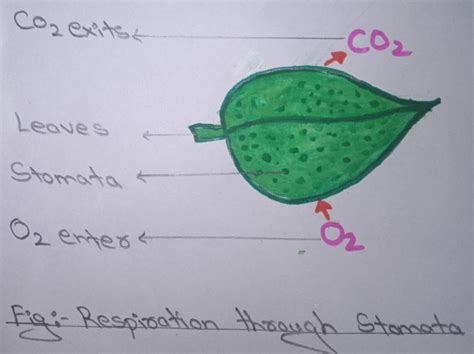 CO2 exits
CO2
Leaves
Stomata
O2 enter
O2
Fig:- Respiration through Stomata